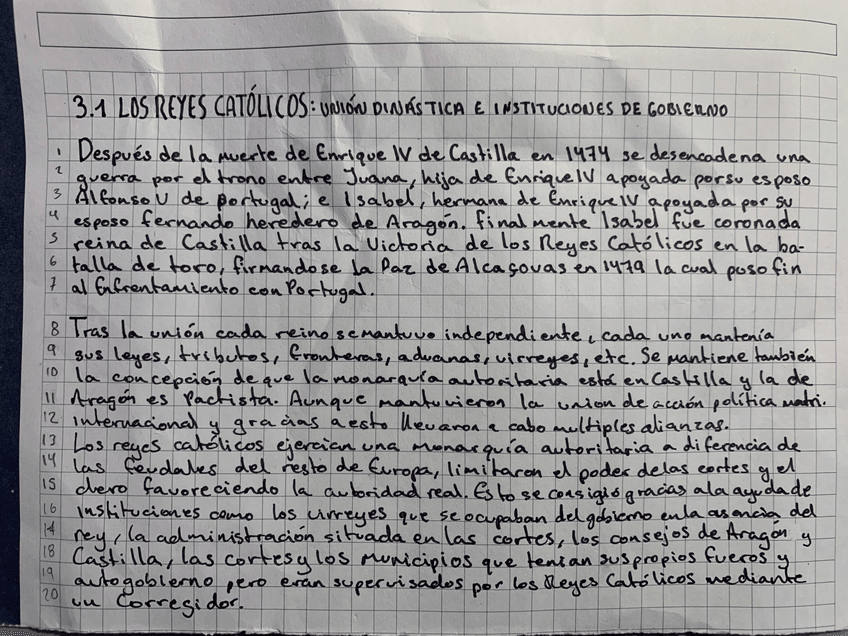 3.1 LOS REYES CATÓLICOS: UNIÓN DINÁSTICA E INSTITUCIONES DE GOBIERNO
1 Después de la muerte de Enrique IV de Castilla en 1474 se desencadena una
2 guerra por el trono entre Juana, hija de Enrique IV apoyada por su esposo
3 Alfonso V de portugal; e Isabel, hermana de Enrique IV apoyada por su
4 esposo fernando heredero de Aragón. finalmente Isabel fue coronada
5 reina de Castilla tras la Victoria de los Reyes Católicos en la ba-
6 talla de toro, firmandose la Paz de Alcaçovas en 1479 la cual puso fin
7 al Enfrentamiento con Portugal.
8 Tras la unión cada reino se mantuvo independiente, cada uno mantenía
9 sus leyes, tributos, fronteras, aduanas, virreyes, etc. Se mantiene también
10 la concepción de que la monarquía autoritaria está en Castilla y la de
11 Aragón es Pactista. Aunque mantuvieron la union de acción política matri.
12 internacional y gracias a esto llevaron a cabo multiples alianzas.
13 Los reyes católicos ejercian una monarquía autoritaria a diferencia de
14 las feudales del resto de Europa, limitaron el poder de las cortes y el
15 clero favoreciendo la autoridad real. Esto se consigió gracias a la ayuda de
16 instituciones como los virreyes que se ocupaban del gobierno en la asencia del
17 rey, la administración situada en las cortes, los consejos de Aragón y
18 Castilla, las cortes y los municipios que tenian sus propios fueros y
19 autogobierno, pero eran supervisados por los Reyes Católicos mediante
20 un Corregidor.